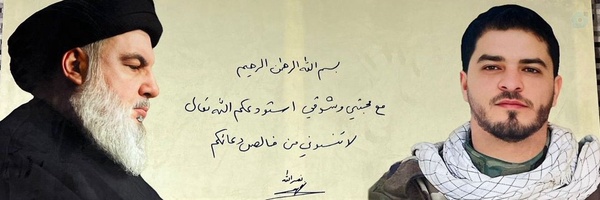 بسم الله الرحمن الرحيم
مع محبتي وشوقي استودعكم الله تعالى
لا تنسوني من خالص دعائكم
نصرالله